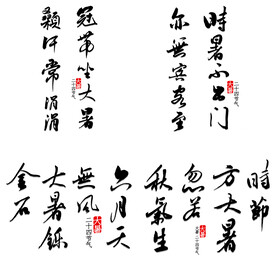 時暑不出门
亦無賓客至
大暑
二十四节气
冠帶坐大暑
顙汗常涓涓
大暑
二十四节气
時節
方大暑
忽若
秋氣生
大暑
六月天
無風
大暑
二十四节气
大暑鑠
金石